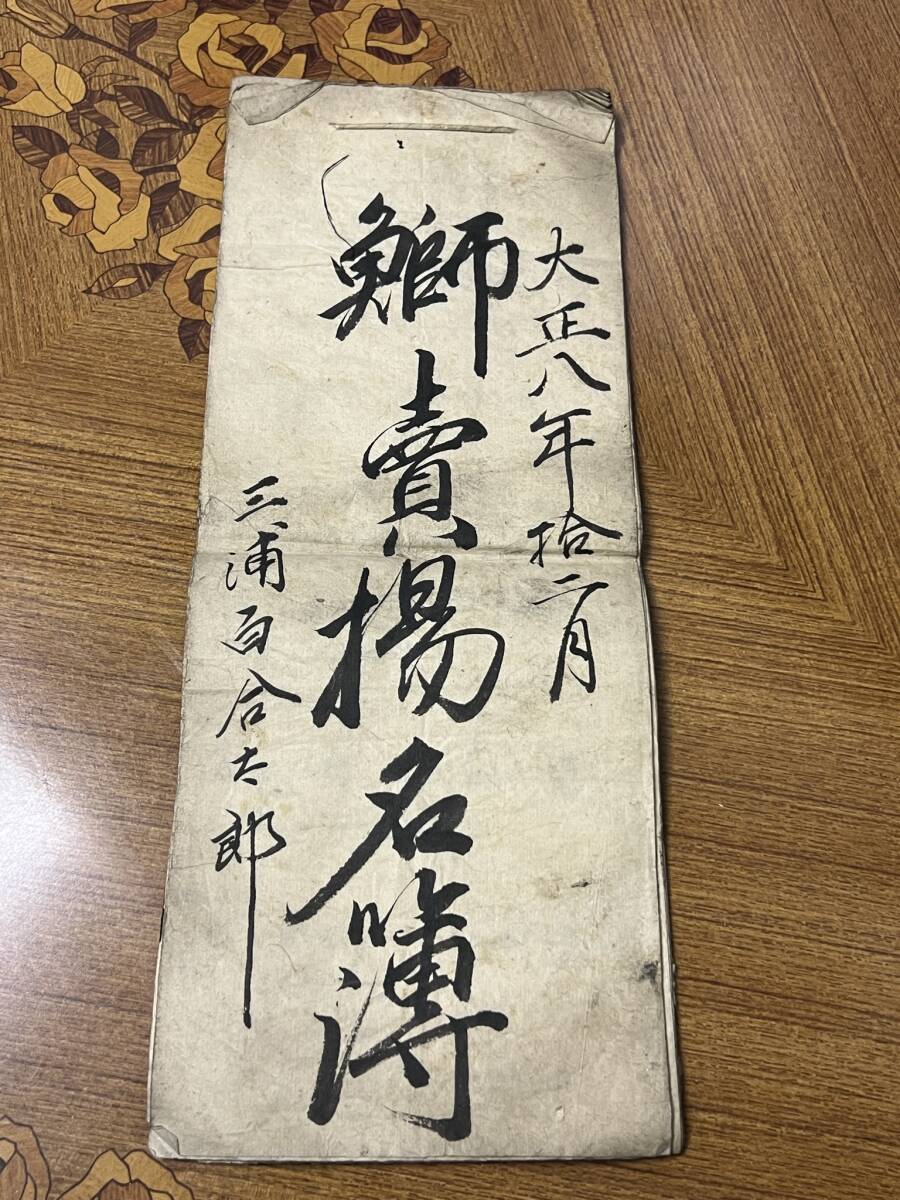 大正八年拾二月
鰤賣揚名簿
三浦百合太郎